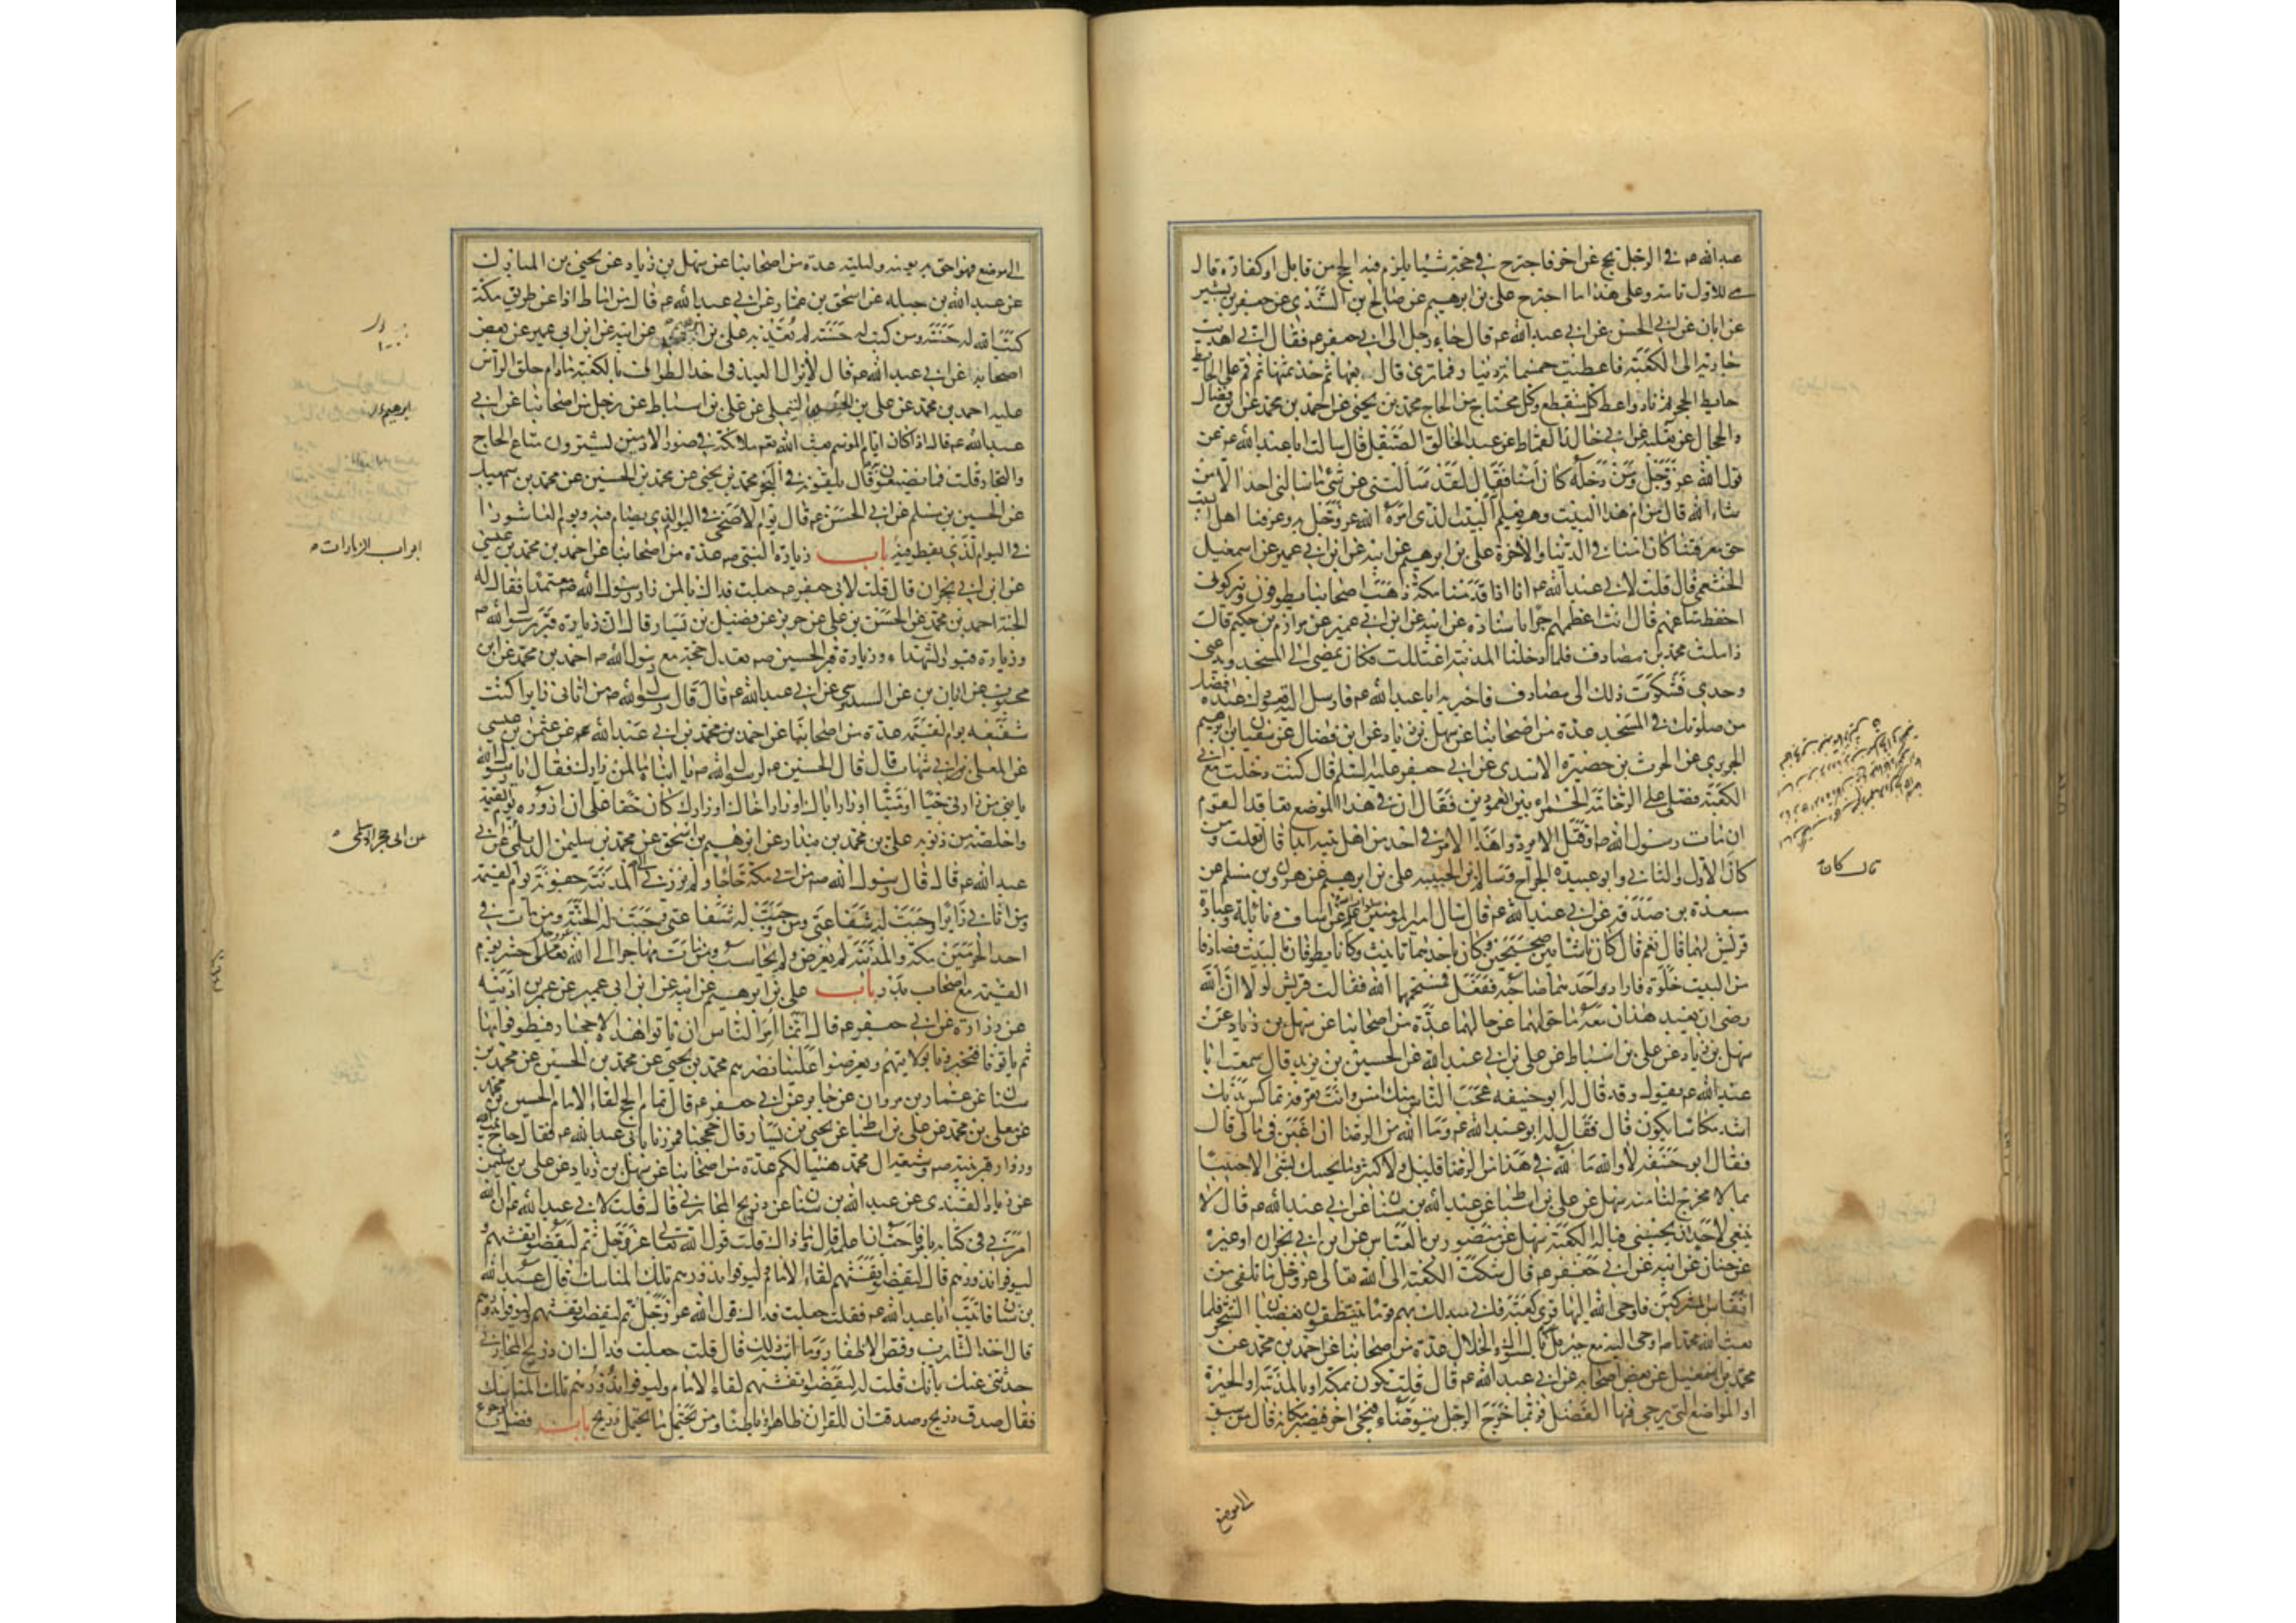 عبد الله ع في الرجل يحج عن اخر فاجترح في حجه شيئا يلزم فيه الحج من قابل او كفارة قال
هي للاول تامة وعلى هذا ما اجترح علي بن ابرهيم عن صالح بن السندي عن جعفر بن بشير
عن ابان عن ابي الحسن عن ابي عبد الله ع قال جاء رجل الى ابي جعفر ع فقال اني اهديت
جارية الى الكعبة فاعطيت خمسمائة دينار فما ترى قال بعها ثم خذ ثمنها ثم قم على الحايط
حايط الحجر ثم ناد واعط كل منقطع وكل محتاج من الحاج محمد بن يحيى عن احمد بن محمد عن ابن فضال
والحجال عن ثعلبة عن ابي خالد القماط عن عبد الخالق الصيقل قال سالت ابا عبد الله ع عن
قول الله عز وجل ومن دخله كان امنا فقال لقد سألتني عن شيء ما سالني احد الا من
شاء الله قال من ام هذا البيت وهو يعلم انه البيت الذي امره الله عز وجل به وعرفنا اهل البيت
حق معرفتنا كان امنا في الدنيا والاخرة علي بن ابرهيم عن ابيه عن ابن ابي عمير عن اسمعيل
الخثعمي قال قلت لابي عبد الله ع انا اذا قدمنا مكة ذهب اصحابنا يطوفون ويتركوني
احفظ متاعهم قال انت اعظمهم اجرا باسناده عن ابيه عن ابن ابي عمير عن مرازم بن حكيم قال
زاملت محمد بن مصادف فلما دخلنا المدينة اعتللت فكان يمضي الى المسجد ويدعني
وحدي فشكوت ذلك الى مصادف فاخبر به ابا عبد الله ع فارسل اليه قعودك عنده افضل
من صلوتك في المسجد عدة من اصحابنا عن سهل بن زياد عن ابن فضال عن سفيان بن ابرهيم
الجريري عن الحرث بن حصيرة الاسدي عن ابي جعفر عليه السلم قال كنت دخلت مع ابي
الكعبة فصلى على الرخامة الحمراء بين العمودين فقال في هذا الموضع تعاقد القوم
ان مات رسول الله ص او قتل الا يردوا هذا الامر في احد من اهل بيته ابدا قال قلت ومن
كان الاول والثاني وابو عبيدة الجراح وسالم بن الحبيبة علي بن ابرهيم عن هرون بن مسلم عن
مسعدة بن صدقة عن ابي عبد الله ع قال سال امير المؤمنين عن اساف ونائلة وعبادة
قريش لهما قال نعم قال كانا شابين صبيحين وكان باحدهما تانيث وكانا يطوفان بالبيت فصادفا
من البيت خلوة فاراد احدهما صاحبه ففعل فمسخهما الله فقالت قريش لولا ان الله
رضي ان يعبد هذان معه ما حولهما عن حالهما عدة من اصحابنا عن سهل بن زياد عن
سهل بن زياد عن علي بن اسباط عن علي بن ابي عبد الله عن الحسين بن يزيد قال سمعت ابا
عبد الله ع يقول وقد قال له ابو حنيفه عجب الناس منك امس وانت بعرفة تماكس ببدنك
اشد مكاسا يكون قال فقال له ابو عبد الله ع وما لله من الرضا ان اغبن في مالي قال
فقال ابو حنيفه لا والله ما لله في هذا من الرضا قليل ولا كثير وما نجيئك بشيء الا جئتنا
بما لا مخرج لنا منه سهل عن علي بن اسباط عن عبد الله بن سنان عن ابي عبد الله ع قال لا
ينبغي لاحد ان يحتبي قبالة الكعبة سهل عن منصور بن العباس عن ابن ابي نجران او غيره
عن حنان عن ابيه عن ابي جعفر ع قال شكت الكعبة الى الله تعالى عز وجل ما تلقى من
انفاس المشركين فاوحى الله اليها قري كعبة فاني مبدلك بهم قوما يتنظفون بقضبان الشجر فلما
بعث الله محمدا ص اوحى اليه مع جبرئيل بالسواك والخلال عدة من اصحابنا عن احمد بن محمد عن
محمد بن اسمعيل عن بعض اصحابه عن ابي عبد الله ع قال قلت نكون بمكة او بالمدينة او الحيرة
او المواضع التي يرجى فيها الفضل فربما خرج الرجل يتوضاء فيجيء اخر فيصير مكانه قال من سبق
الى موضع
قال كان
الى موضع فهو احق به يومه وليلته عدة من اصحابنا عن سهل بن زياد عن يحيى بن المبارك
عن عبد الله بن جبله عن اسحق بن عمار عن ابي عبد الله ع قال من اماط اذا عن طريق مكة
كتب الله له حسنة ومن كتب له حسنة لم يعذبه علي بن ابرهيم عن ابيه عن ابن ابي عمير عن بعض
اصحابه عن ابي عبد الله ع قال لا يزال العبد في احد الطواف بالكعبة ما دام حلق الراس
عليه احمد بن محمد عن علي بن التيملي عن علي بن اسباط عن رجل من اصحابنا عن ابي
عبد الله ع قال اذا كان ايام الموسم بعث الله ملائكة في صور الادميين يشترون متاع الحاج
والتجار قلت فما يصنعون قال يلقونه في البحر محمد بن يحيى عن محمد بن الحسين عن محمد بن سعيد
عن الحسين بن مسلم عن ابي الحسن ع قال يوم الاضحى في اليوم الذي يصام فيه ويوم العاشورا
في اليوم الذي يفطر فيه باب زيارة النبي ص عدة من اصحابنا عن احمد بن محمد بن عيسى
عن ابن ابي نجران قال قلت لابي جعفر ع جعلت فداك ما لمن زار رسول الله ص متعمدا فقال له
الجنة احمد بن محمد عن الحسن بن علي عن حريز عن فضيل بن يسار قال ان زيارة قبر رسول الله ص
وزيارة قبور الشهداء وزيارة قبر الحسين ص تعدل حجة مع رسول الله ص احمد بن محمد عن ابن
محبوب عن ابان عن السدوسي عن ابي عبد الله ع قال قال رسول الله ص من اتاني زايرا كنت
شفيعه يوم القيمة عدة من اصحابنا عن احمد بن محمد بن ابي عبد الله عن عثمن بن عيسى
عن المعلى بن ابي شهاب قال قال الحسين ع لرسول الله ص يا ابتاه ما لمن زارك فقال رسول الله
يا بني من زارني حيا او ميتا او زار اباك او زار اخاك او زارك كان حقا علي ان ازوره يوم القيمة
واخلصه من ذنوبه علي بن محمد بن بندار عن ابرهيم بن اسحق عن محمد بن سليمن الديلمي عن ابي
عبد الله ع قال قال رسول الله ص من اتى مكة حاجا ولم يزرني الى المدينة جفوته يوم القيمة
ومن اتاني زايرا وجبت له شفاعتي ومن وجبت له شفاعتي وجبت له الجنة ومن مات في
احد الحرمين مكة والمدينة لم يعرض ولم يحاسب ومن مات مهاجرا الى الله تعالى حشر يوم
القيمة مع اصحاب بدر باب علي بن ابرهيم عن ابيه عن ابن ابي عمير عن عمر بن اذينه
عن زرارة عن ابي جعفر ع قال انما امر الناس ان ياتوا هذه الاحجار فيطوفوا بها
ثم ياتونا فيخبرونا بولايتهم ويعرضوا علينا نصرهم محمد بن يحيى عن محمد بن الحسين عن محمد بن
سنان عن عمار بن مروان عن جابر عن ابي جعفر ع قال تمام الحج لقاء الامام الحسين بن محمد
عن معلى بن محمد عن علي بن اسباط عن يحيى بن يسار قال حججنا فمررنا بابي عبد الله ع فقال حاج بيت الله
وزوار قبر نبيه ص وشيعة ال محمد هنيئا لكم عدة من اصحابنا عن سهل بن زياد عن علي بن سليمن
عن زياد القندي عن عبد الله بن سنان عن ذريح المحاربي قال قلت لابي عبد الله ع ان الله
امرني في كتابه بامر فاحب ان اعلمه قال وما ذاك قلت قول الله تعالى عز وجل ثم ليقضوا تفثهم و
ليوفوا نذورهم قال ليقضوا تفثهم لقاء الامام وليوفوا نذورهم تلك المناسك قال عبد الله
بن سنان فاتيت ابا عبد الله ع فقلت جعلت فداك قول الله عز وجل ثم ليقضوا تفثهم وليوفوا نذورهم
قال اخذ الشارب وقص الاظفار وما اشبه ذلك قال قلت جعلت فداك ان ذريح المحاربي
حدثني عنك بانك قلت له ليقضوا تفثهم لقاء الامام وليوفوا نذورهم تلك المناسك
فقال صدق ذريح وصدقت ان للقران ظاهرا وباطنا ومن يحتمل ما يحتمل ذريح باب فضل
ابواب الزيارات
عن ابي حجر الاسلمي